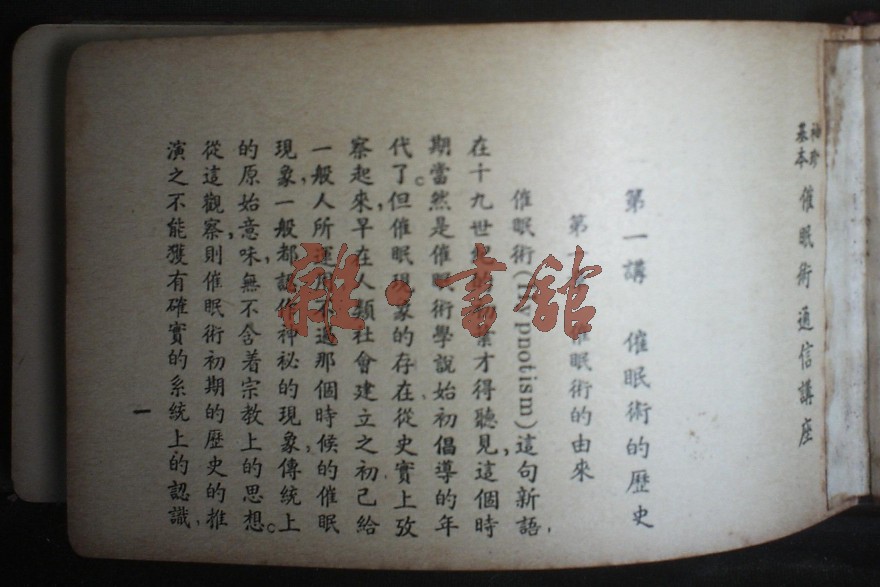 袖珍
基本
催眠術通信講座
第一講　催眠術的歷史
第一　催眠術的由來
催眠術(Hypnotism)這句新語，
在十九世才得聽見這個時
期當然是催眠術學說始初倡導的年
代了。但催眠現象的存在從史實上攷
察起來，早在人類社會建立之初已給
一般人所運用不過那個時候的催眠
現象，一般都認作神祕的現象，傳統上
的原始意味，無不含着宗教上的思想。
從這觀察則催眠術初期的歷史的推
演之不能獲有確實的系統上的認識，
一
雜·書館